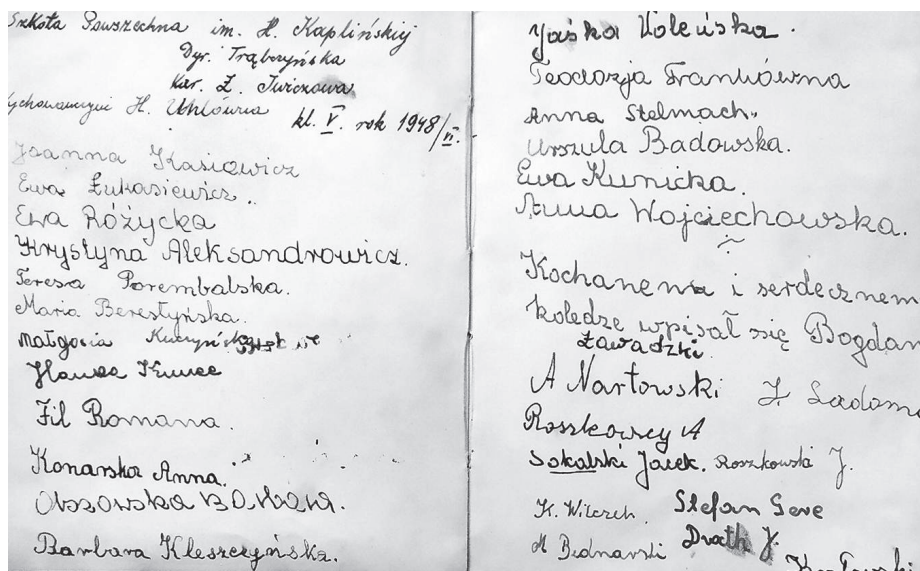 Szkoła Powszechna im. H. Kaplińskiej
Dyr. Trąbczyńska
Kar. Z. Świczowa
H. Uhlówna
kl. V. rok 1948/VI.
Joanna Kasiewicz
Ewa Łukasiewicz.
Ewa Różycka
Krystyna Aleksandrowicz.
Teresa Porembalska.
Maria Berestyńska.
Małgosia
Fil Romana.
Konarska Anna.
Olszowska
Barbara Kleszczyńska.
Jaśka Koleńska.
Teodozja Frankówna
Anna Stelmach.
Urszula Badowska.
Ewa Kunicka.
Anna Wojciechowska.
Kochanemu i serdecznem
koledze wpisał się Bogdan
Zawadzki
A Nartowski
Roszkowscy A
Sokalski Jacek. Roszkowski J.
K. Wilczek. Stefan
M Bednarski Drath J.